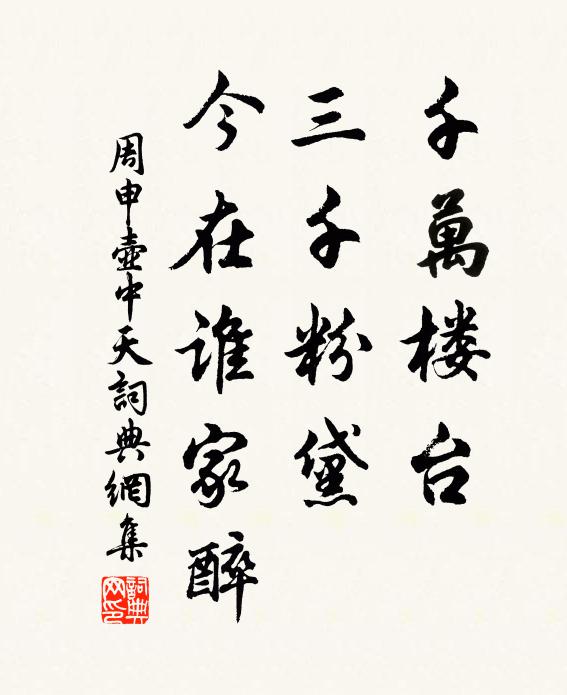 千萬楼台
三千粉黛
今在谁家醉
周申壺中天詞典網集
詞典
网印